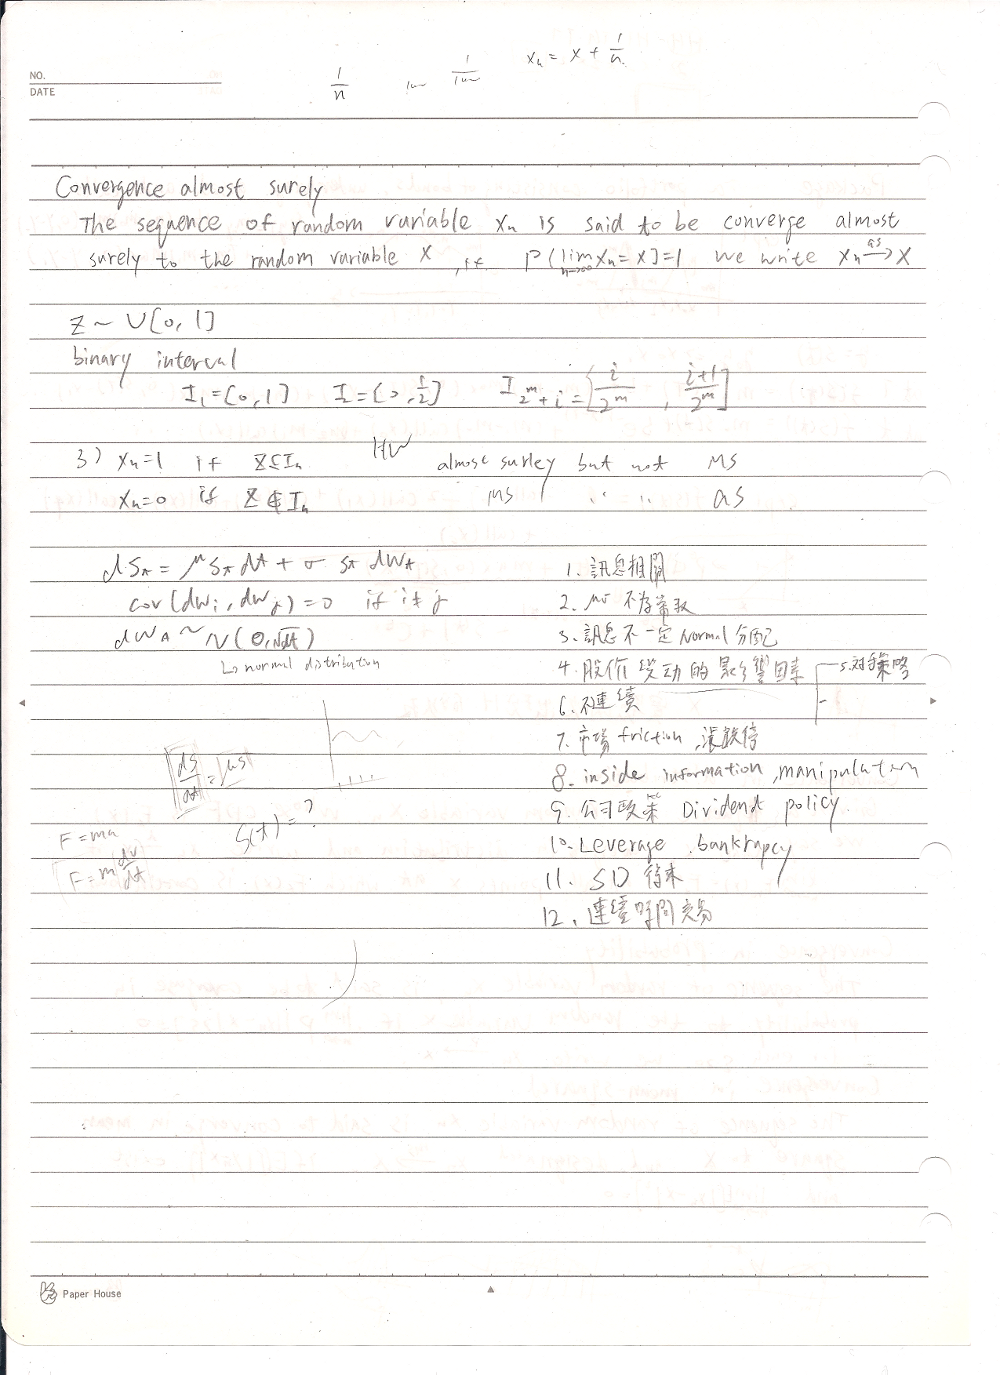 x_n = x + 1/n
1/n
NO.
DATE
Convergence almost surely
The sequence of random variable x_n is said to be converge almost
surely to the random variable X , if P(lim_{n→∞} x_n = x)=1 we write x_n →^{as} X
Z ~ U[0, 1]
binary interval
I_1=[0,1] I_2=[0,1/2] I_{2^m+i}=[i/2^m , i+1/2^m]
3) x_n=1 if Z∈I_n HW almost surley but not MS
x_n=0 if Z∉I_n MS " " as
dS_t = μ S_t dt + σ S_t dW_t
cov(dw_i, dw_j)=0 if i≠j
dW_t ~ N(0, √dt)
↳ normal distribution
1. 訊息相關
2. μσ 不為常數
3. 訊息不一定 Normal 分配
4. 股价变动的影響因素
5. 对手策略
6. 不連續
7. 市場 friction, 漲跌停
8. inside information, manipulation
9. 公司政策 Dividend policy
10. Leverage, bankrupcy
11. SD
12. 連續時間交易
dS/dt = μS
S(t) = ?
F = ma
F = m dv/dt
Paper House